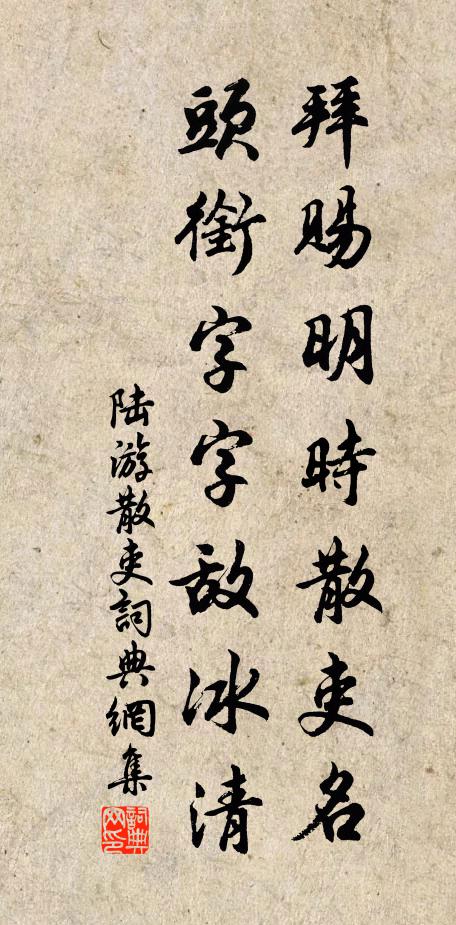 拜賜明時散吏名
頭銜字字敌冰清
陆游散吏詞典網集
詞典网印